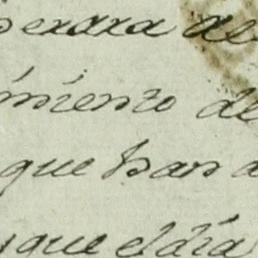 perara de
imiento de
que han a
que el dia